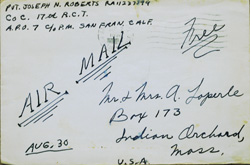 PVT. JOSEPH N. ROBERTS RA11237794
CO C. 17th R.C.T.
A.P.O. 7 C/O P.M. SAN FRAN. CALF.
Free
AIR MAIL
Mr. & Mrs. A. Laperle
Box 173
Indian Orchard,
Mass.
AUG. 30
U.S.A.